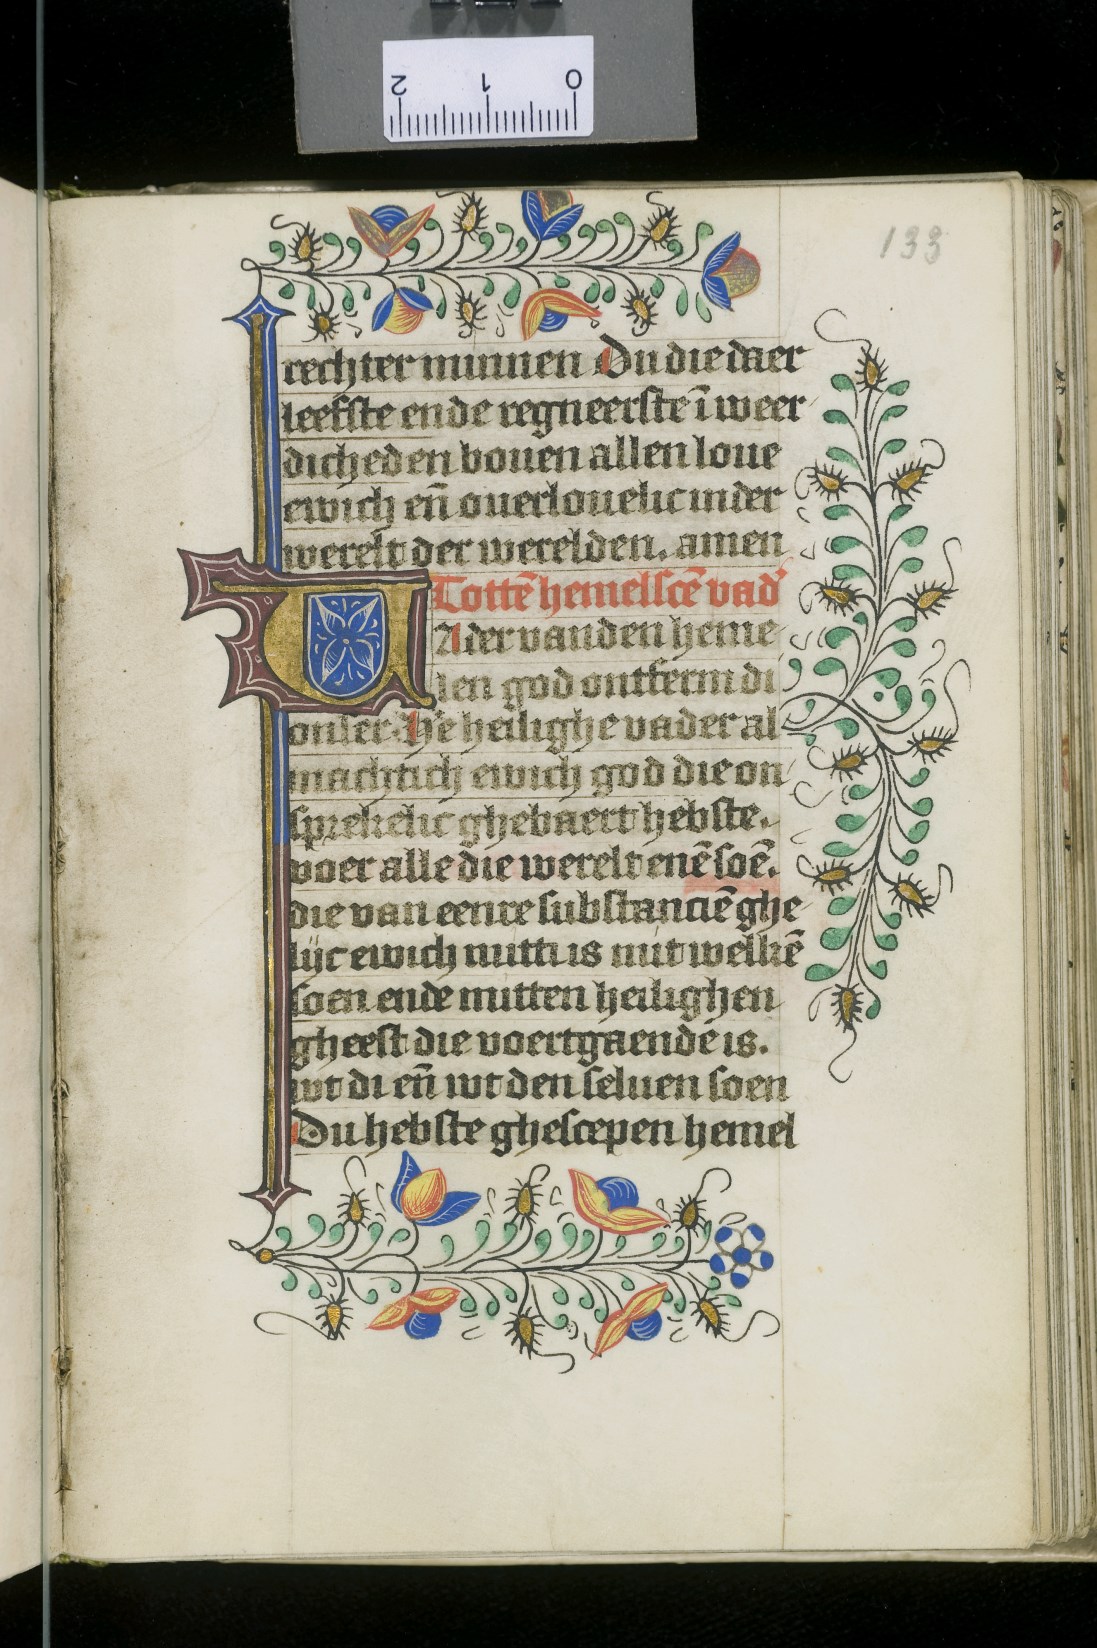 2 1 0
133
rechter minnen Du die daer
leefste ende regneerste ī weer
dicheden bouen allen loue
ewich en̄ ouerlouelic in der
werelt der werelden. amen
Tottē hemelscē vad'
VAder vanden heme
len god ontferm di
onser. He heilighe vader al
machtich ewich god die on
sprekelic ghebaert hebste.
voer alle die werelt enē soē.
die van eenre substanciē ghe
lijc ewich mitti is mit welkē
soen ende mitten heilighen
gheest die voertgaende is.
wt di en̄ wt den seluen soen
Du hebste ghescepen hemel